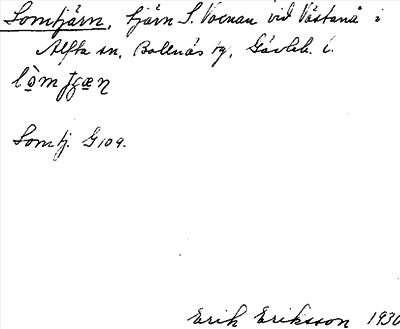 Lomtjärn, tjärn S. Voxnan vid Västanå i
Alfta sn, Bollnäs tg, Gävleb. l.
lòmʃçæn
Lomtj. G109.
Erik Eriksson 1930